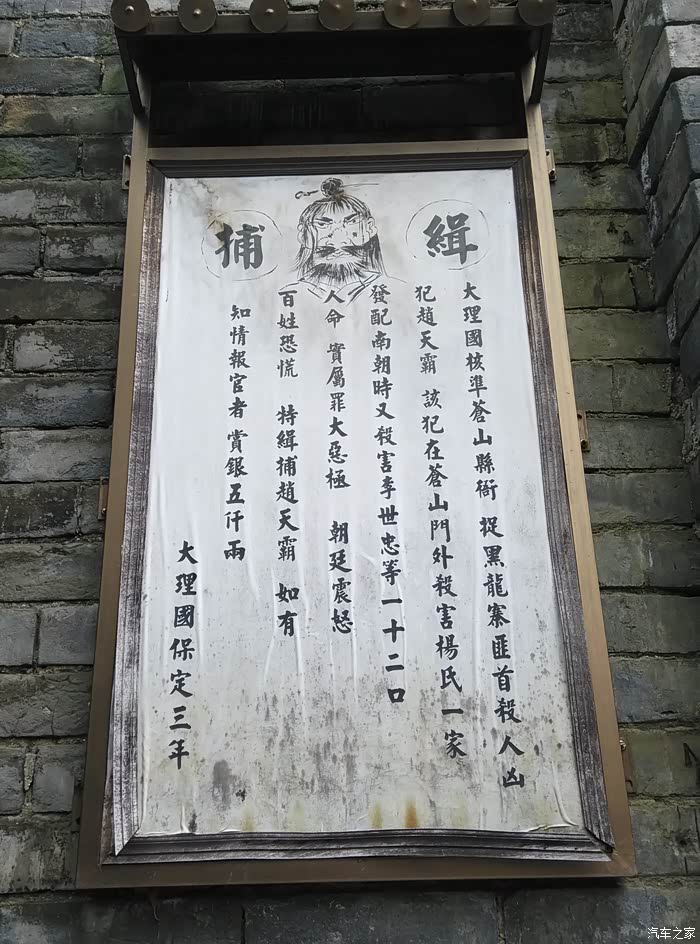 緝捕
大理國核準蒼山縣衙 捉黑龍寨匪首殺人凶
犯趙天霸 該犯在蒼山門外殺害楊氏一家
發配南朝時又殺害李世忠等一十二口
人命 實屬罪大惡極 朝廷震怒
百姓恐慌 特緝捕趙天霸 如有
知情報官者賞銀五仟兩
大理國保定三年
汽车之家